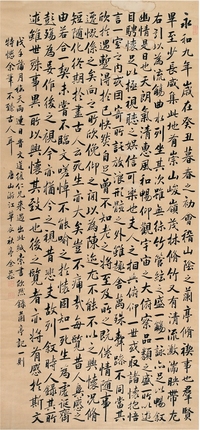 永和九年歲在癸丑暮春之初會稽山陰之蘭亭脩禊事也羣賢
畢至少長咸集此地有崇山峻嶺茂林脩竹又有清流激湍映帶左
右引以為流觴曲水列坐其次雖無絲竹管弦之盛一觴一詠亦足以暢叙
幽情是日也天朗氣清惠風和暢仰觀宇宙之大俯察品類之盛所以遊
目騁懷足以極視聽之娛信可樂也夫人之相與俯仰一世或取諸懷抱悟
言一室之內或因寄所託放浪形骸之外雖趣舍萬殊靜躁不同當其
欣於所遇暫得於己快然自足不知老之將至及其所之既倦情隨事
遷感慨係之矣向之所欣俛仰之間以為陳迹猶不能不以之興懷況脩
短隨化終期於盡古人云死生亦大矣豈不痛哉每覽昔人興感之
由若合一契未嘗不臨文嗟悼不能喻之於懷固知一死生為虛誕齊
彭殤為妄作後之視今亦由今之視昔悲夫故列叙時人錄其所
述雖世殊事異所以興懷其致一也後之覽者亦將有感於斯文